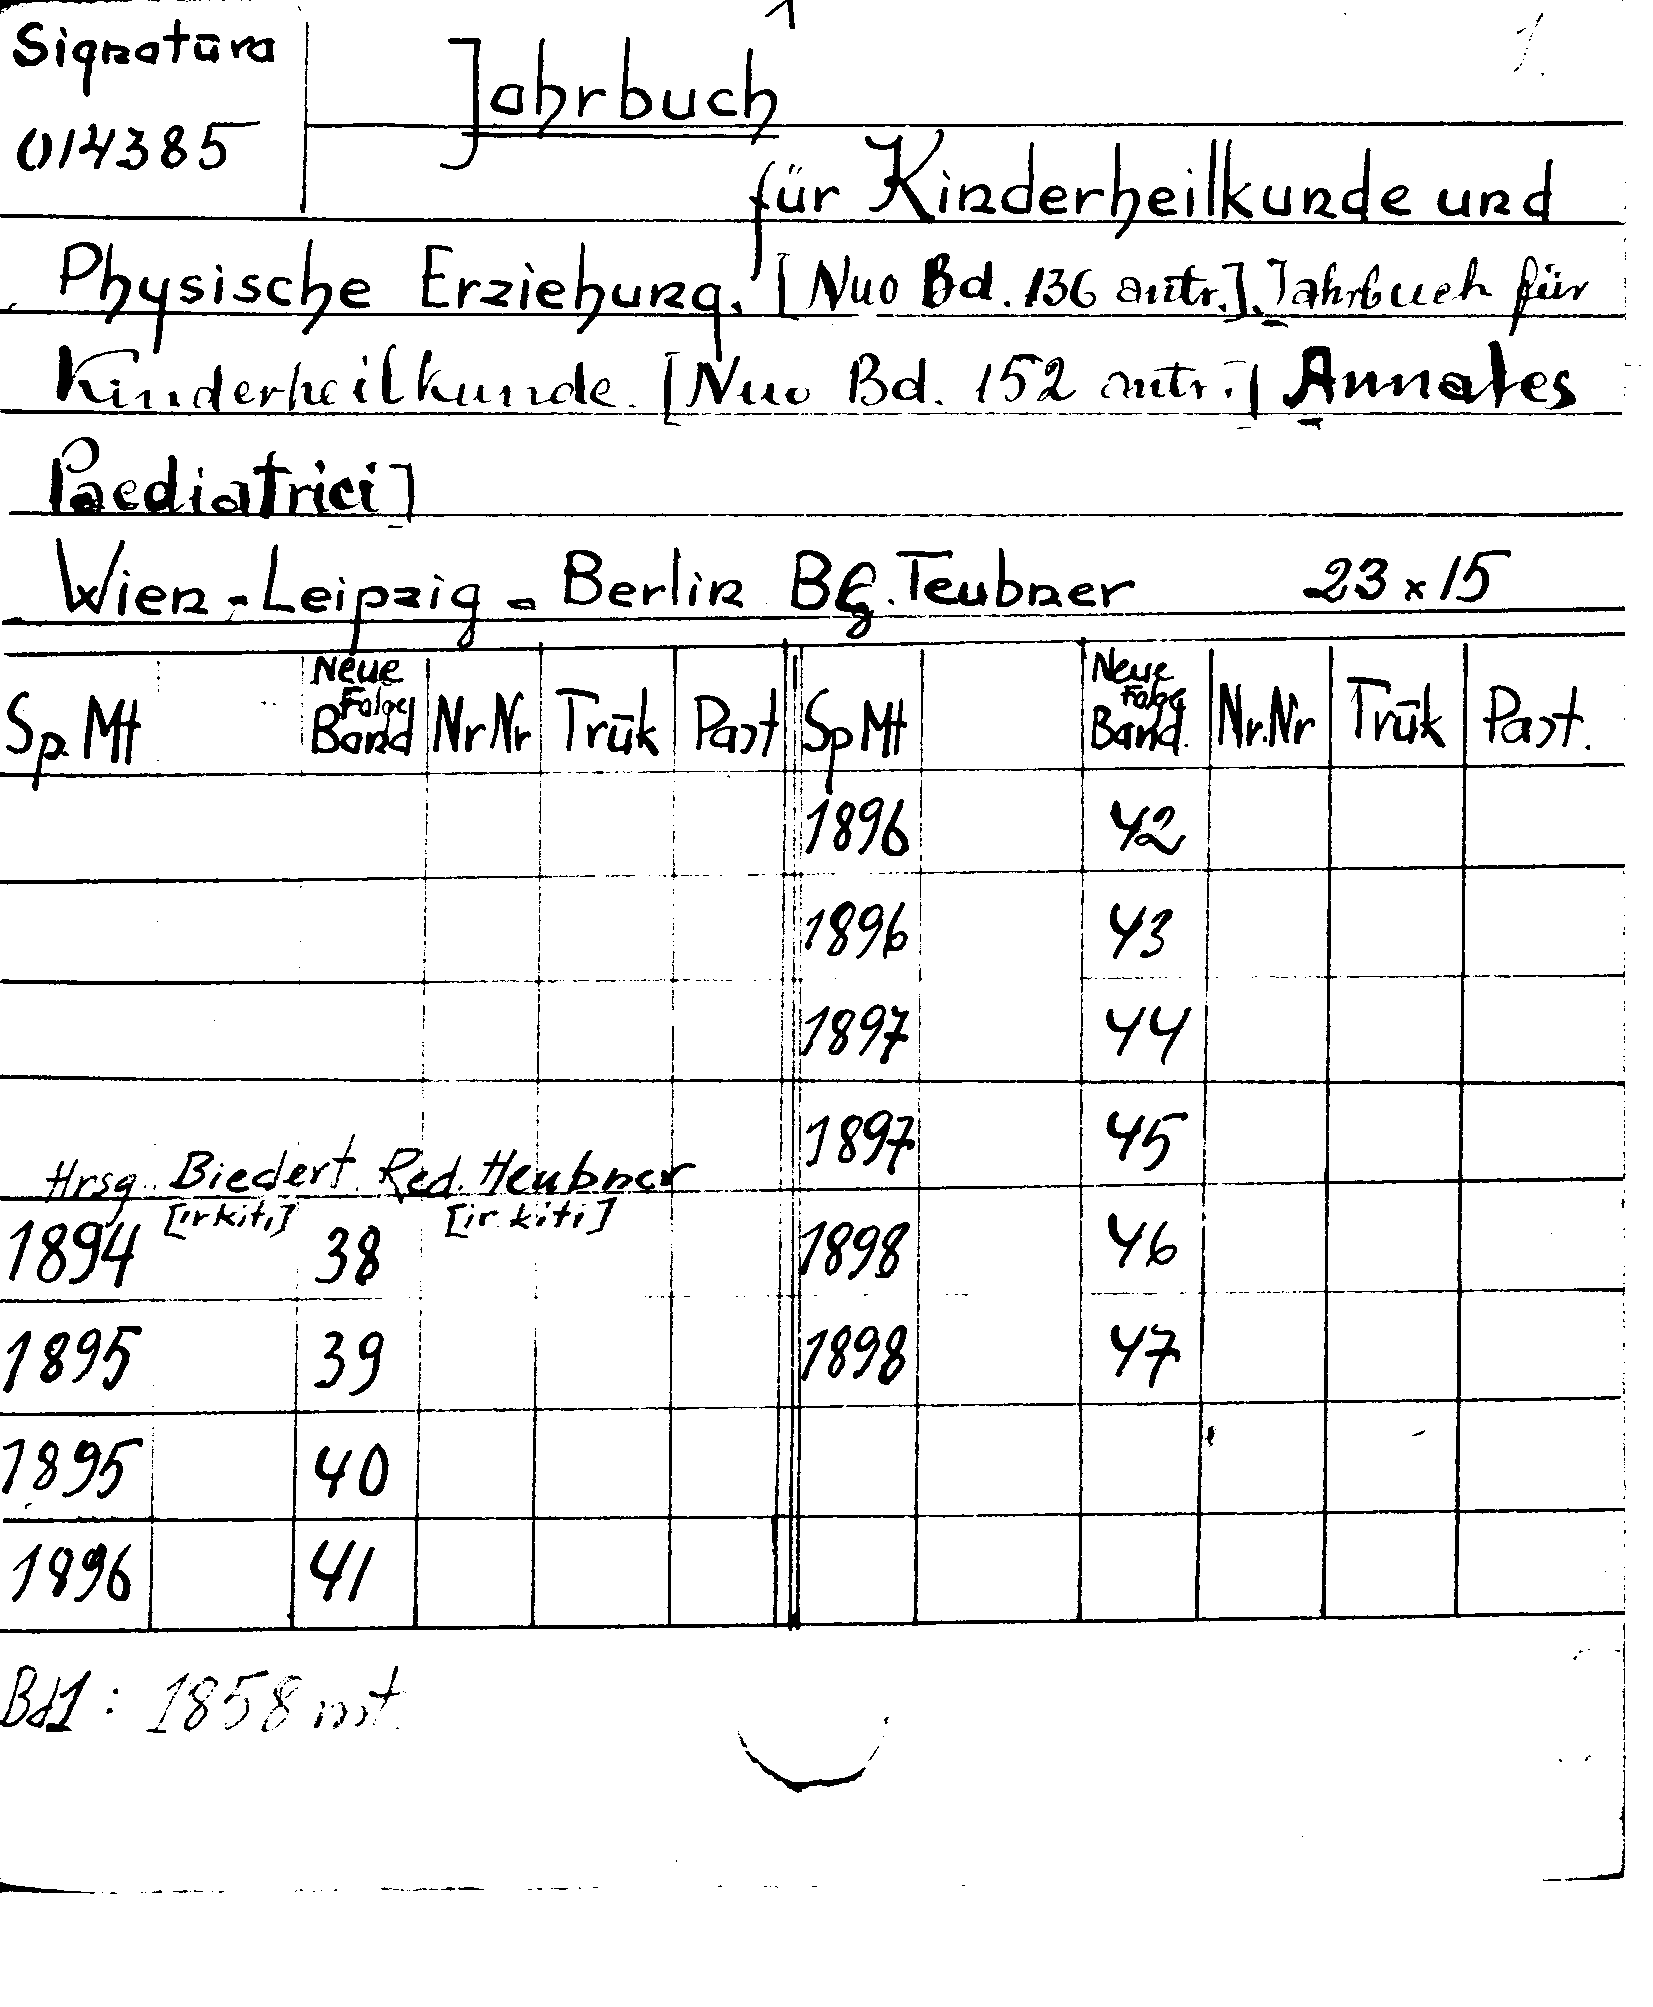 1
Signatūra
014385
Jahrbuch
für Kinderheilkunde und
Physische Erziehung. [Nuo Bd. 136 antr.]. Jahrbuch für
Kinderheilkunde. [Nuo Bd. 152 antr.] Annales
Paediatrici]
Wien - Leipzig - Berlin BG. Teubner 23 x 15
Sp. Mt Neue Folge Band Nr Nr Trūk Past Sp Mt Neue Folge Band. Nr. Nr Trūk Past.
1896 42
1896 43
1897 44
1897 45
Hrsg. Biedert Red. Heubner
[ir kiti] [ir kiti]
1894 38 1898 46
1895 39 1898 47
1895 40
1896 41
Bd1 : 1858 mt.